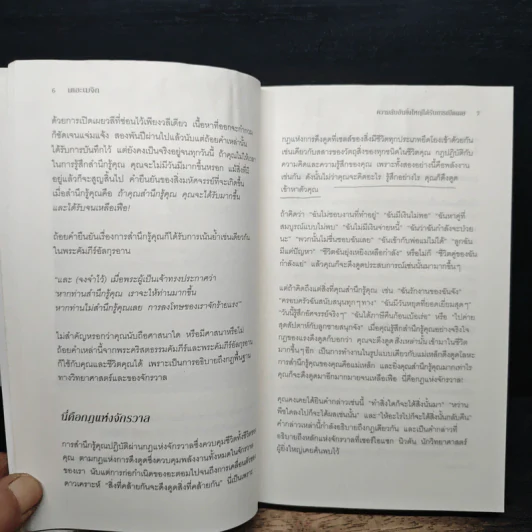 6 เดอะเมจิก
ด้วยการเปิดเผยวลีที่ซ่อนไว้เพียงวลีเดียว เนื้อหาที่ออกจะกำกวม
ก็ชัดเจนแจ่มแจ้ง สองพันปีผ่านไปแล้วนับแต่ถ้อยคำเหล่านั้น
ได้รับการบันทึกไว้ แต่ยังคงเป็นจริงอยู่จนทุกวันนี้ ถ้าคุณไม่ให้เวลา
ในการรู้สึกสำนึกรู้คุณ คุณจะไม่มีวันมีมากขึ้นหรอก แม้สิ่งที่มี
อยู่แล้วก็จะสูญสิ้นไป คำยืนยันของสิ่งมหัศจรรย์ที่จะเกิดขึ้น
เมื่อสำนึกรู้คุณคือ ถ้าคุณสำนึกรู้คุณ คุณจะได้รับมากขึ้น
และได้รับจนเหลือเฟือ!
ถ้อยคำยืนยันเรื่องการสำนึกรู้คุณก็ได้รับการเน้นย้ำเช่นเดียวกัน
ในพระคัมภีร์อัลกุรอาน
“และ (จงจำไว้) เมื่อพระผู้เป็นเจ้าทรงประกาศว่า
‘หากท่านสำนึกรู้คุณ เราจะให้ท่านมากขึ้น
หากท่านไม่สำนึกรู้คุณเลย การลงโทษของเราจักร้ายแรง’”
ไม่สำคัญหรอกว่าคุณนับถือศาสนาใด หรือมีศาสนาหรือไม่
ถ้อยคำเหล่านี้จากพระคริสตธรรมคัมภีร์และพระคัมภีร์อัลกุรอาน
ก็ใช้กับคุณและชีวิตคุณได้ เพราะเป็นการอธิบายถึงกฎพื้นฐาน
ทางวิทยาศาสตร์และของจักรวาล
นี่คือกฎแห่งจักรวาล
การสำนึกรู้คุณปฏิบัติผ่านกฎแห่งจักรวาลซึ่งควบคุมชีวิตทั้งชีวิตของ
คุณ ตามกฎแห่งการดึงดูดซึ่งควบคุมพลังงานทั้งหมดในจักรวาล
ของเรา นับแต่การก่อกำเนิดของอะตอมไปจนถึงการเคลื่อนตัวของ
ดาวเคราะห์ “สิ่งที่คล้ายกันจะดึงดูดสิ่งที่คล้ายกัน” นี่เป็นเพราะ
7
กฎแห่งการดึงดูดที่เซลล์ของสิ่งมีชีวิตทุกประเภทยึดโยงเข้าด้วยกัน
เช่นเดียวกับสสารของวัตถุสิ่งของทุกชนิดในชีวิตคุณ กฎปฏิบัติกับ
ความคิดและความรู้สึกของคุณ เพราะทั้งสองอย่างนี้คือพลังงาน
เช่นกัน ดังนั้นไม่ว่าคุณจะคิดอะไร รู้สึกอย่างไร คุณก็ดึงดูด
เข้าหาตัวคุณ
ถ้าคิดว่า “ฉันไม่ชอบงานที่ทำอยู่” “ฉันมีเงินไม่พอ” “ฉันหาคู่ที่
สมบูรณ์แบบไม่พบ” “ฉันไม่มีเงินจ่ายหนี้” “ฉันว่าฉันกำลังจะป่วย
นะ” “พวกนั้นไม่ชื่นชอบฉันเลย” “ฉันเข้ากับพ่อแม่ไม่ได้” “ลูกฉัน
มีแต่ปัญหา” “ชีวิตฉันยุ่งเหยิงเหลือกำลัง” หรือไม่ก็ “ชีวิตคู่ของฉัน
กำลังแย่” แล้วคุณก็จะดึงดูดประสบการณ์เช่นนั้นมามากขึ้นๆ
แต่ถ้าคิดถึงแต่สิ่งที่คุณสำนึกรู้คุณ เช่น “ฉันรักงานของฉันจัง”
“ครอบครัวฉันสนับสนุนทุกๆทาง” “ฉันมีวันหยุดที่ยอดเยี่ยมสุดๆ”
“วันนี้รู้สึกอัศจรรย์จริงๆ” “ฉันได้ภาษีคืนก้อนเบ้อเร่อ” หรือ “ไปค่าย
สุดสัปดาห์กับลูกชายสนุกจัง” เมื่อคุณรู้สึกสำนึกรู้คุณอย่างจริงใจ
กฎของแรงดึงดูดก็บอกว่า คุณจะดึงดูด สิ่งเหล่านั้นเข้ามาในชีวิต
มากขึ้นๆอีก เป็นการทำงานในรูปแบบเดียวกับแม่เหล็กดึงดูดโลหะ
การสำนึกรู้คุณของคุณคือแม่เหล็ก และยิ่งคุณสำนึกรู้คุณมากเท่าไร
คุณก็จะดึงดูดมาอีกมากมายจนเหลือเฟือ นี่คือกฎแห่งจักรวาล!
คุณคงเคยได้ยินคำกล่าวเช่นนี้ “ทำสิ่งใดก็จะได้สิ่งนั้นมา” “หว่าน
พืชใดลงไปก็จะได้ผลเช่นนั้น” และ “ให้อะไรไปก็จะได้สิ่งนั้นกลับคืน”
คำกล่าวเหล่านี้กำลังอธิบายถึงกฎเดียวกัน และเป็นคำกล่าวที่
อธิบายถึงหลักแห่งจักรวาลที่เซอร์ไอแซก นิวตัน นักวิทยาศาสตร์
ผู้ยิ่งใหญ่เคยค้นพบไว้